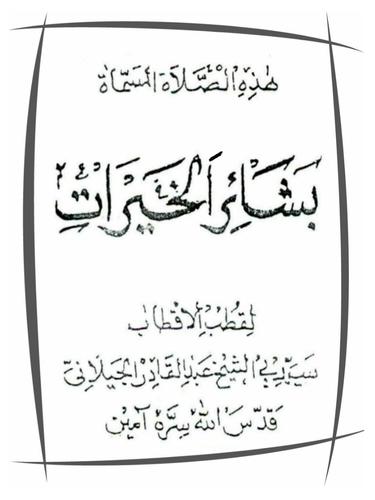 هٰذِهِ الصَّلَاةُ الْمُسَمَّاةُ
بَشَائِرُ الْخَيْرَاتِ
لِقُطْبِ الْاَقْطَابِ
سَيِّدِي الشَّيْخِ عَبْدِ الْقَادِرِ الْجَيْلَانِيِّ
قَدَّسَ اللهُ سِرَّهُ آمِيْن